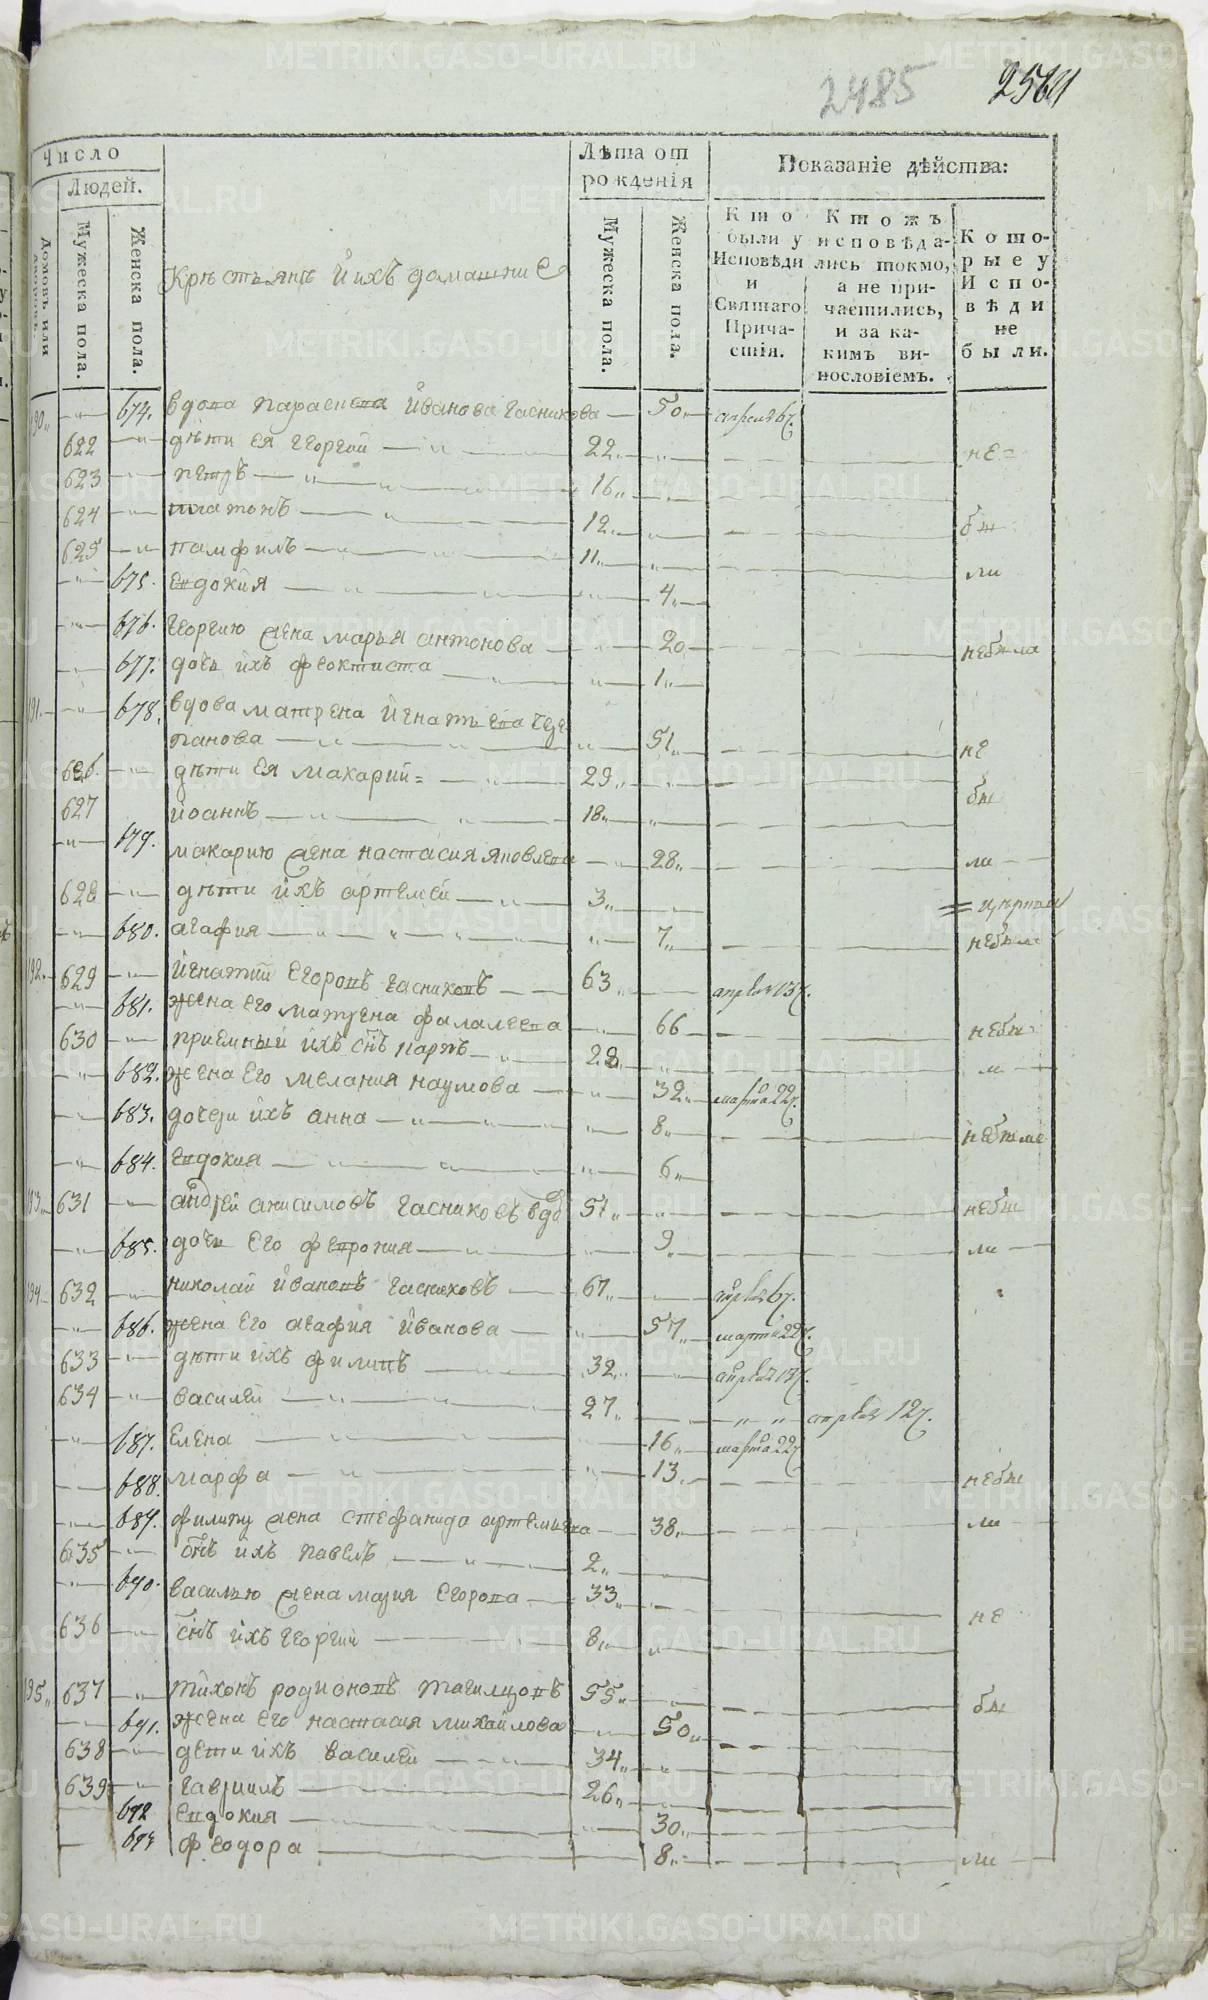 2485 2564
Число
Людей.
Домовъ или дворовъ.
Мужеска пола.
Женска пола.
Крестьянъ и ихъ домашние
Лѣта от рожденія
Мужеска пола.
Женска пола.
Показаніе дѣйства:
Кто были у Исповѣди и Святаго Причастія.
Ктожъ исповѣдались токмо, а не причастились, и за какимъ винословіемъ.
Которые у Исповѣди не были.
190 674. вдова параскева Иванова Часникова 50 апреля 6
622 дѣти ея Георгий 22 не
623 петръ 16
624 платонъ 12 бы
625 памфилъ 11 ли
675. Евдокия 4
676. Георгию жена марья антонова 20 небыла
677. дочь ихъ феоктиста 1
191 678. вдова матрена Игнатьева Чере
панова 51 не
626. дѣти ея макарий 29 бы
627 иоаннъ 18
679. макарию жена настасия яковлева 28 ли
628 дѣти ихъ артемей 3
680. агафия 7 небыли
192 629 Игнатий Егоровъ Часниковъ 63 апреля 13
681. жена Его матрена фалалеева 66 небы
630 приемный ихъ снъ карпъ 28 ли
682. жена Его мелания наумова 32 марта 22
683. дочери ихъ анна 8 небыли
684. Евдокия 6
193 631 андрей анисимовъ Часниковъ вдо 51 небы
685. дочь Его феврония 9 ли
194 632 николай Ивановъ Часниковъ 67 апреля 6
686. жена Его агафия Иванова 57 марта 22
633 дѣти ихъ филипъ 32 апреля 13
634 василей 27 апреля 12
687. Елена 16 марта 22
688. марфа 13 небы
689. филипу жена стефанида артемиева 38 ли
635 снъ ихъ павелъ 2
690. василью жена мария Егорова 33 не
636 снъ ихъ Георгий 8
195 637 тихонъ родионовъ тагилцовъ 55 бы
691. жена Его настасия михайлова 50
638 дети ихъ василей 34
639 гавриилъ 26
692 Евдокия 30
693 феодора 8 ли
METRIKI.GASO-URAL.RU